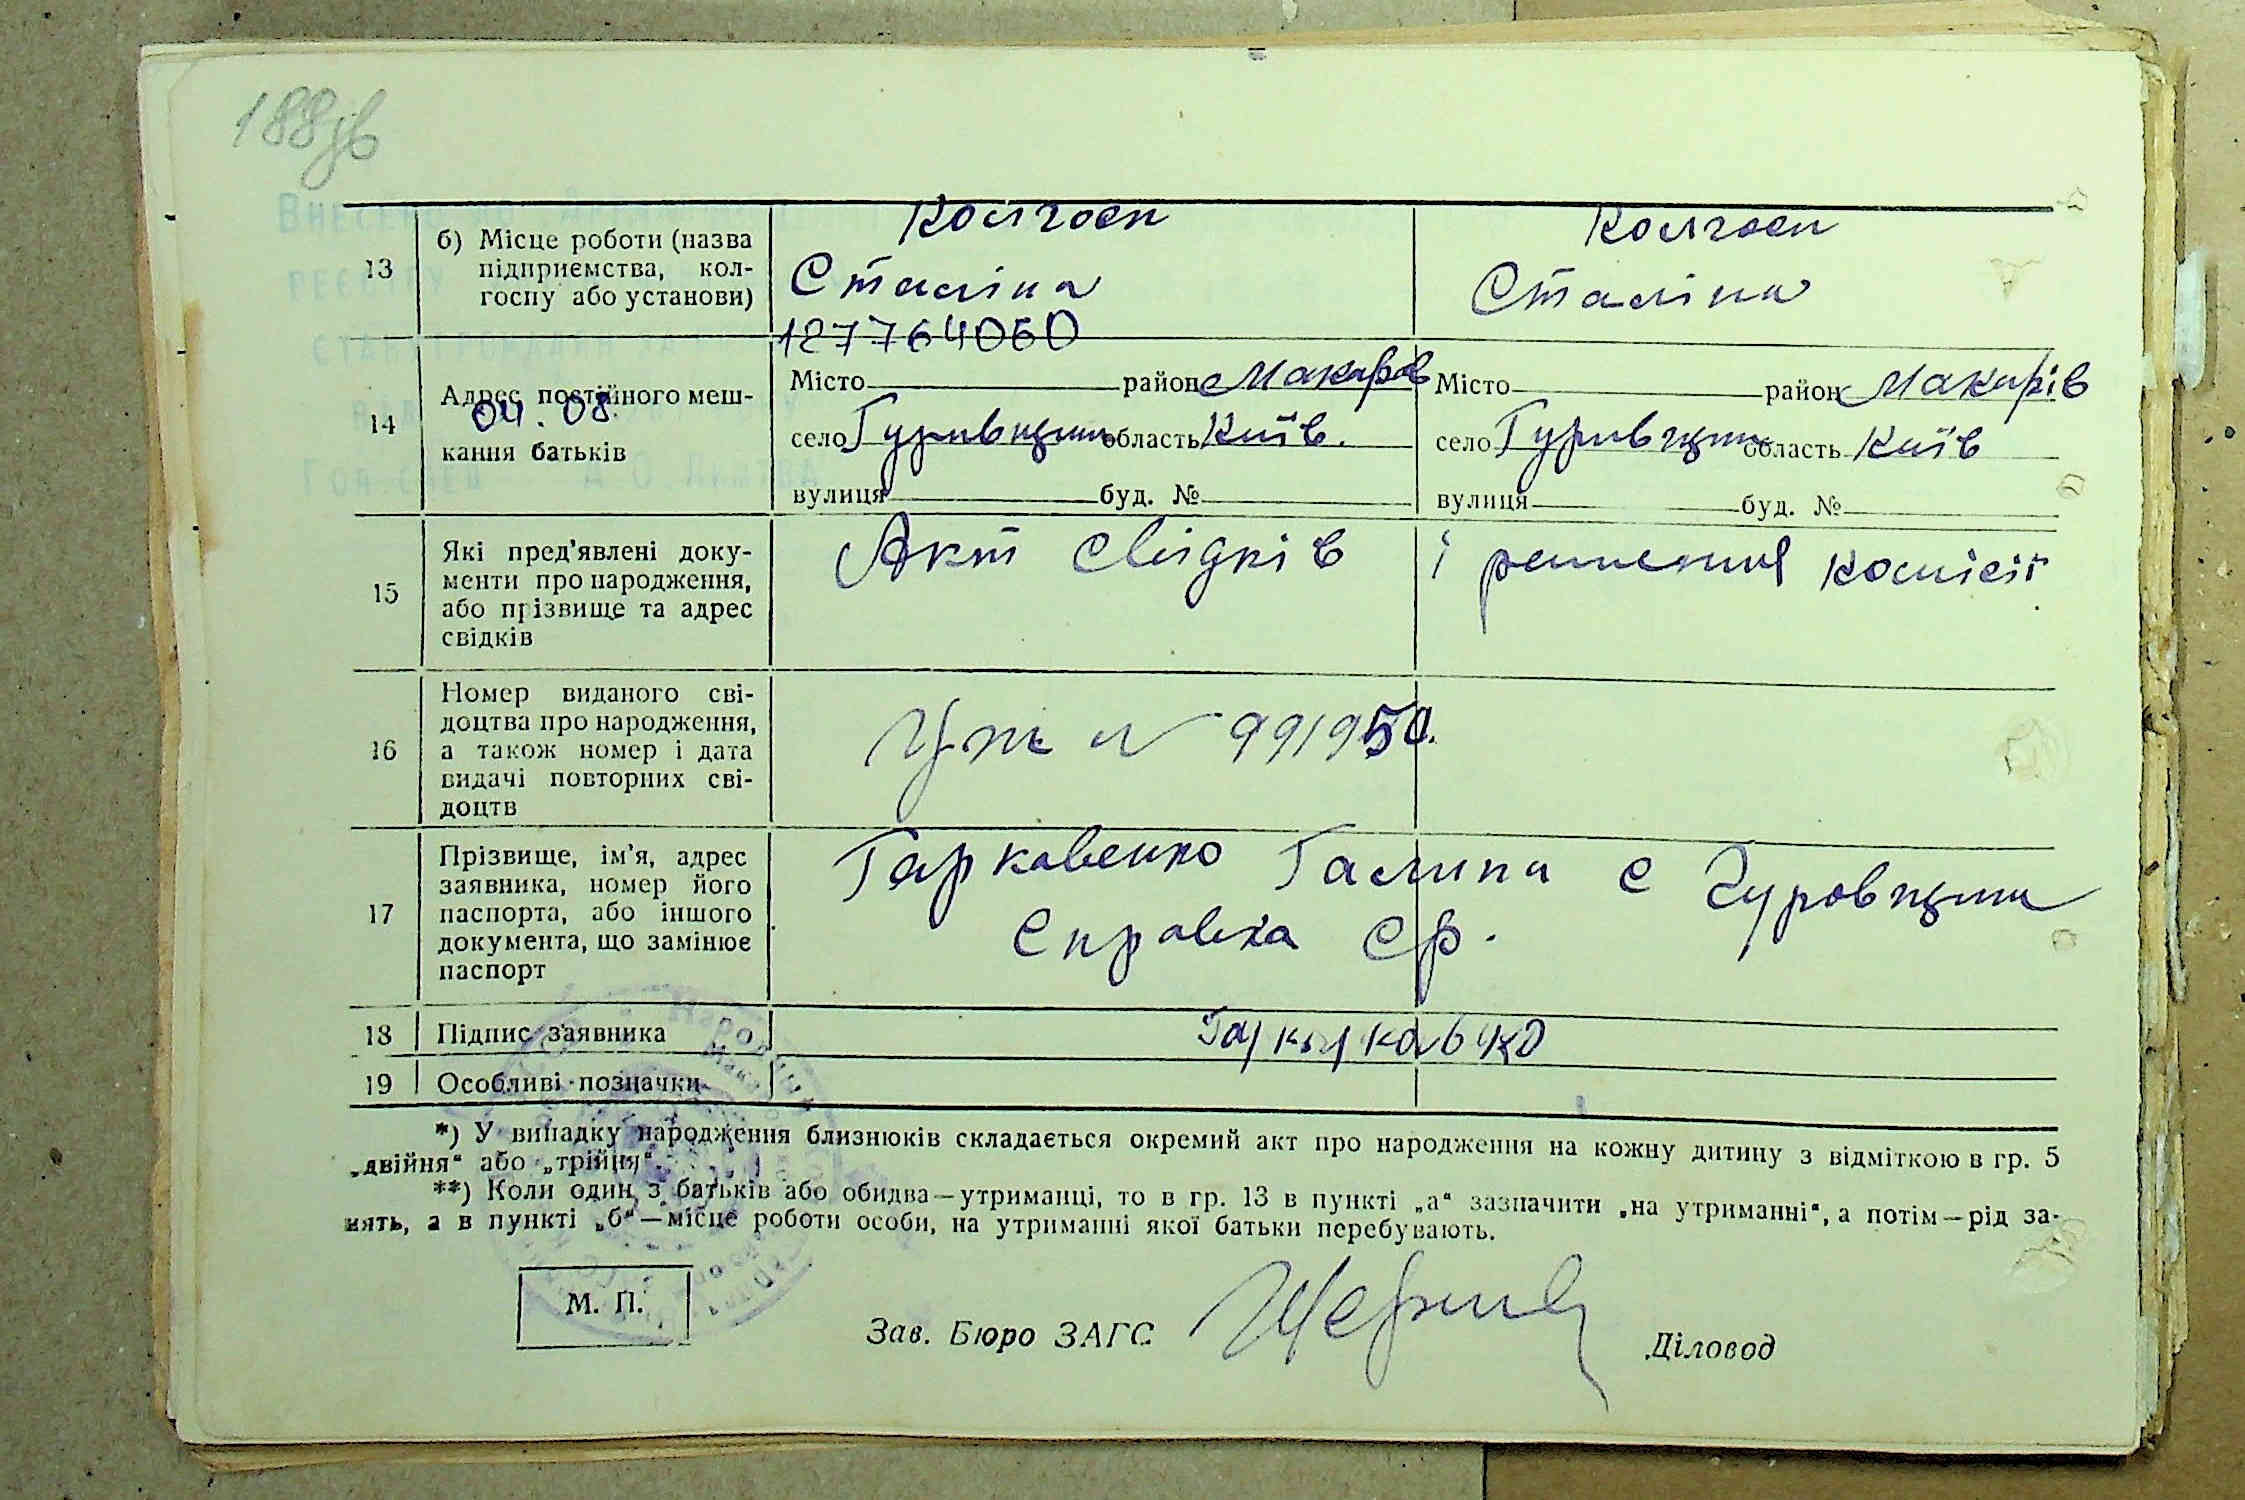 188зв
13
б) Місце роботи (назва
підприємства, кол-
госпу або установи)
Колгосп
Сталіна
Колгосп
Сталіна
127764060
14
Адрес постійного меш-
04.08.
кання батьків
Місто район Макарів
село Гурівщина область Київ.
вулиця буд. №
Місто район Макарів
село Гурівщина область Київ
вулиця буд. №
15
Які пред'явлені доку-
менти про народження,
або прізвище та адрес
свідків
Акт свідків і решения комісії
16
Номер виданого сві-
доцтва про народження,
а також номер і дата
видачі повторних сві-
доцтв
991950.
17
Прізвище, ім'я, адрес
заявника, номер його
паспорта, або іншого
документа, що замінює
паспорт
Гаркавенко Галина с Гуровщина
Справка ср.
18 Підпис заявника
19 Особливі позначки
*) У випадку народження близнюків складається окремий акт про народження на кожну дитину з відміткою в гр. 5
„двійня“ або „трійня“.
**) Коли один з батьків або обидва—утриманці, то в гр. 13 в пункті „а“ зазначити „на утриманні“, а потім—рід за-
нять, а в пункті „б“—місце роботи особи, на утриманні якої батьки перебувають.
М. П.
Зав. Бюро ЗАГС
Діловод